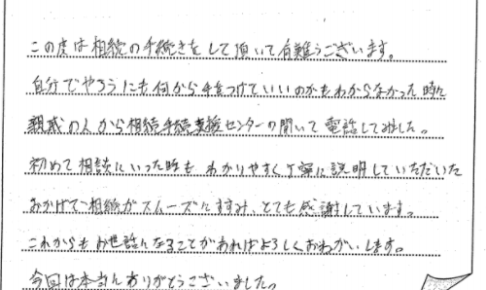 この度は相続の手続きをして頂いて有難うございます。
自分でやろうにも何から手をつけていいのかもわからなかった時に
親戚の人から相続手続支援センターの聞いて電話してみました。
初めて相談にいった時もわかりやすく丁寧に説明していただいた
おかげで相続がスムーズにすすみ、とても感謝しています。
これからもお世話になることがあればよろしくおねがいします。
今回は本当にありがとうございました。